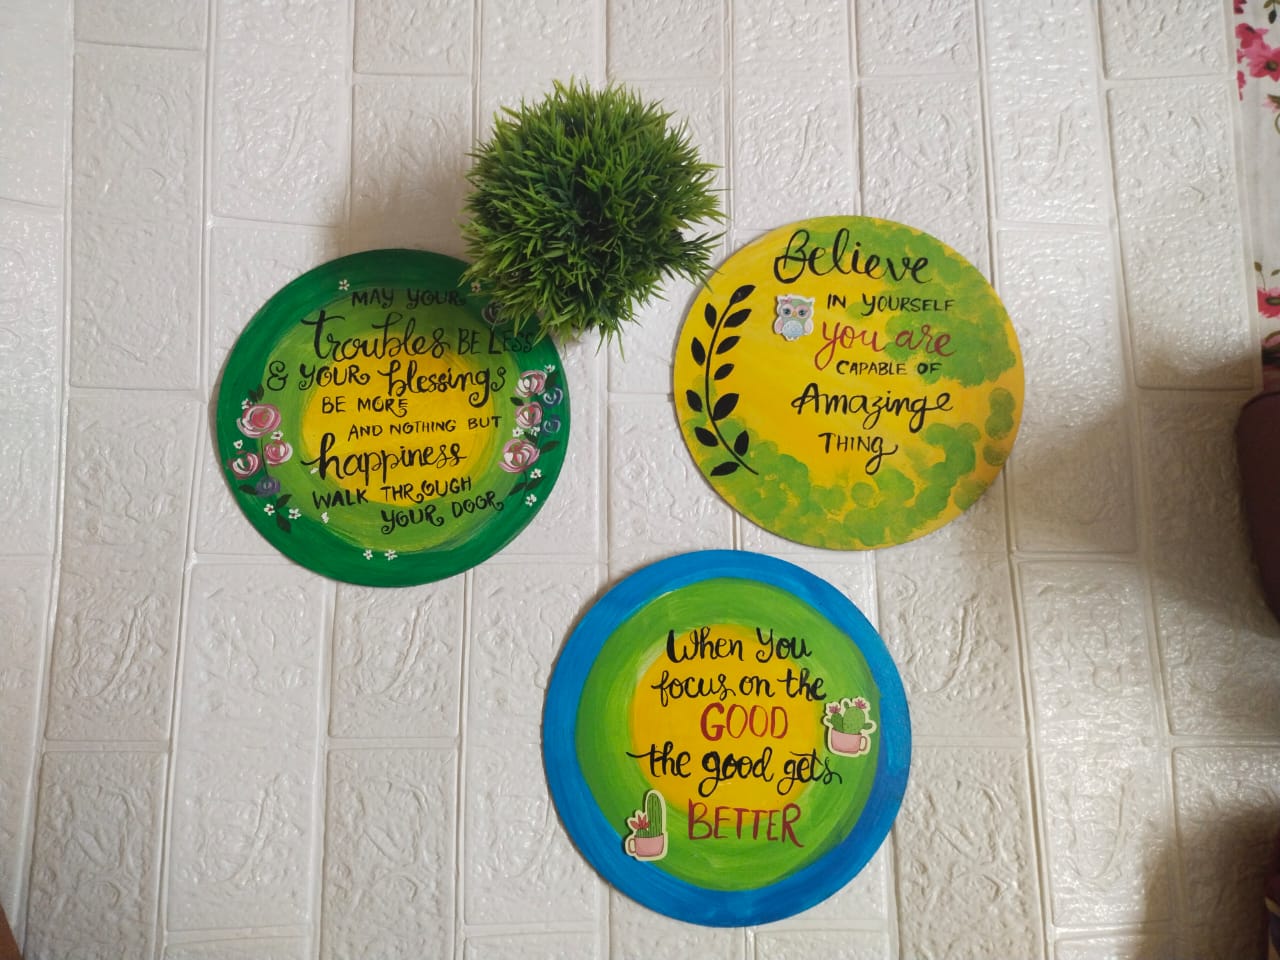 MAY YOUR
Troubles BE LESS
& YOUR blessings
BE MORE
AND NOTHING BUT
happiness
WALK THROUGH
YOUR DOOR
Believe
IN YOURSELF
you are
CAPABLE OF
Amazing
THING
When You
focus on the
GOOD
the good gets
BETTER